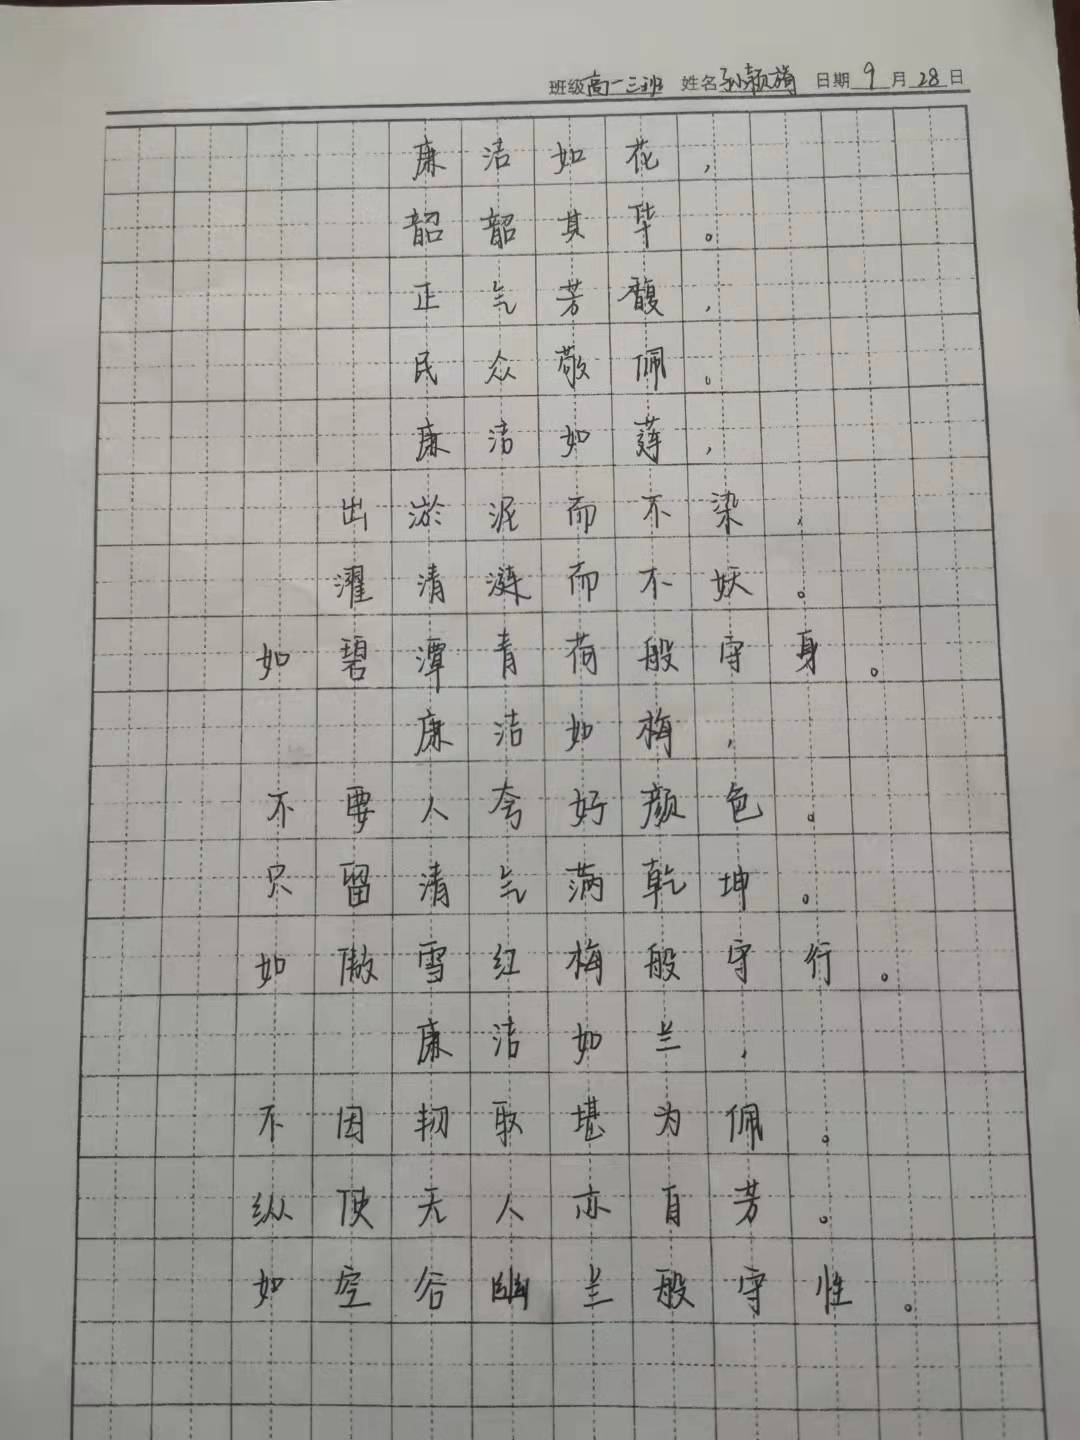 班级高一三班 姓名孙颖旖 日期9月28日
廉洁如花，
韶韶其华。
正气芳馥，
民众敬佩。
廉洁如莲，
出淤泥而不染，
濯清涟而不妖。
如碧潭青荷般守身。
廉洁如梅，
不要人夸好颜色。
只留清气满乾坤。
如傲雪红梅般守行。
廉洁如兰，
不因韧取堪为佩。
纵使无人亦自芳。
如空谷幽兰般守性。